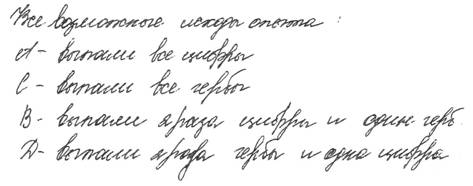 Все возможные исходы опыта:
А - выпали все цифры
С - выпали все гербы
В - выпали 2 раза цифры и один герб.
D - выпали 2 раза гербы и одна цифра